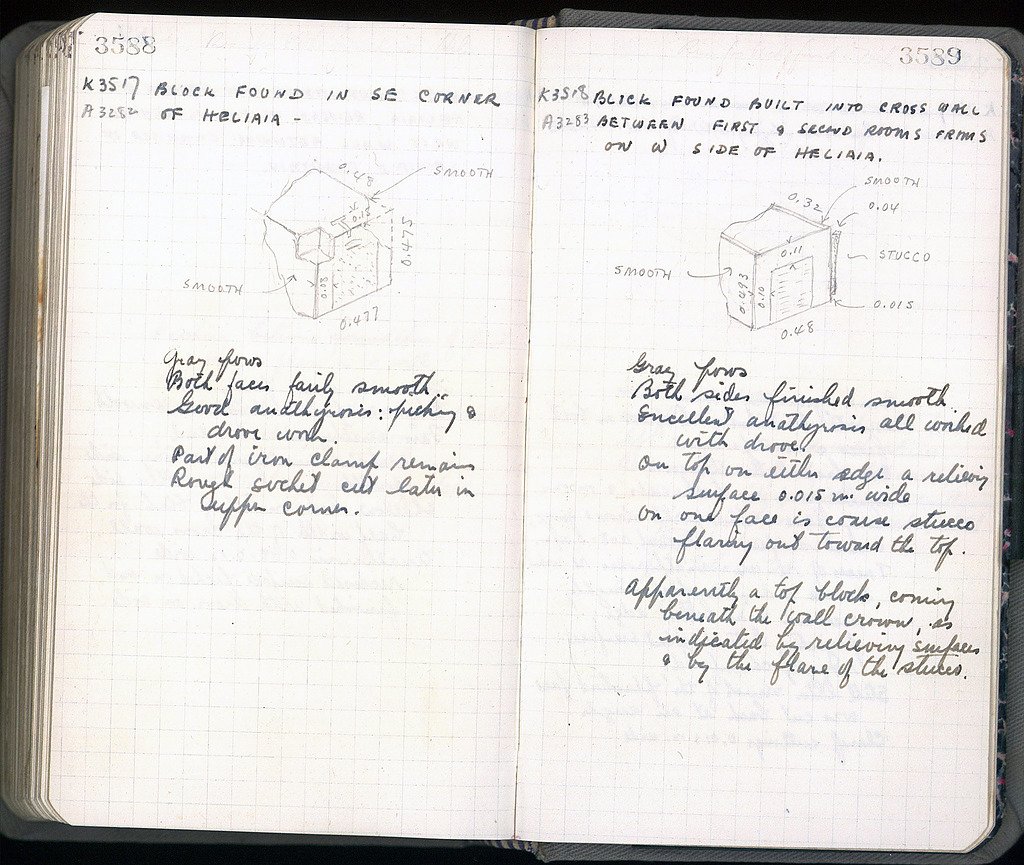 3588
K3517 BLOCK FOUND IN SE CORNER
A3282 OF HELIAIA -
0.48
SMOOTH
0.15
0.475
SMOOTH
0.08
0.477
Gray poros
Both faces fairly smooth.
Good anathyrosis: picking &
drove work.
Part of iron clamp remains
Rough socket cut later in
upper corner.
3589
K3518 BLOCK FOUND BUILT INTO CROSS WALL
A3283 BETWEEN FIRST & SECOND ROOMS FROM S
ON W SIDE OF HELIAIA.
SMOOTH
0.32
0.04
0.11
STUCCO
SMOOTH
0.493
0.10
0.015
0.48
Gray poros
Both sides finished smooth.
Excellent anathyrosis all worked
with drove.
On top on either edge a relieving
surface 0.015 m. wide
On one face is coarse stucco
flaring out toward the top.
Apparently a top block, coming
beneath the wall crown, as
indicated by relieving surfaces
& by the flare of the stucco.